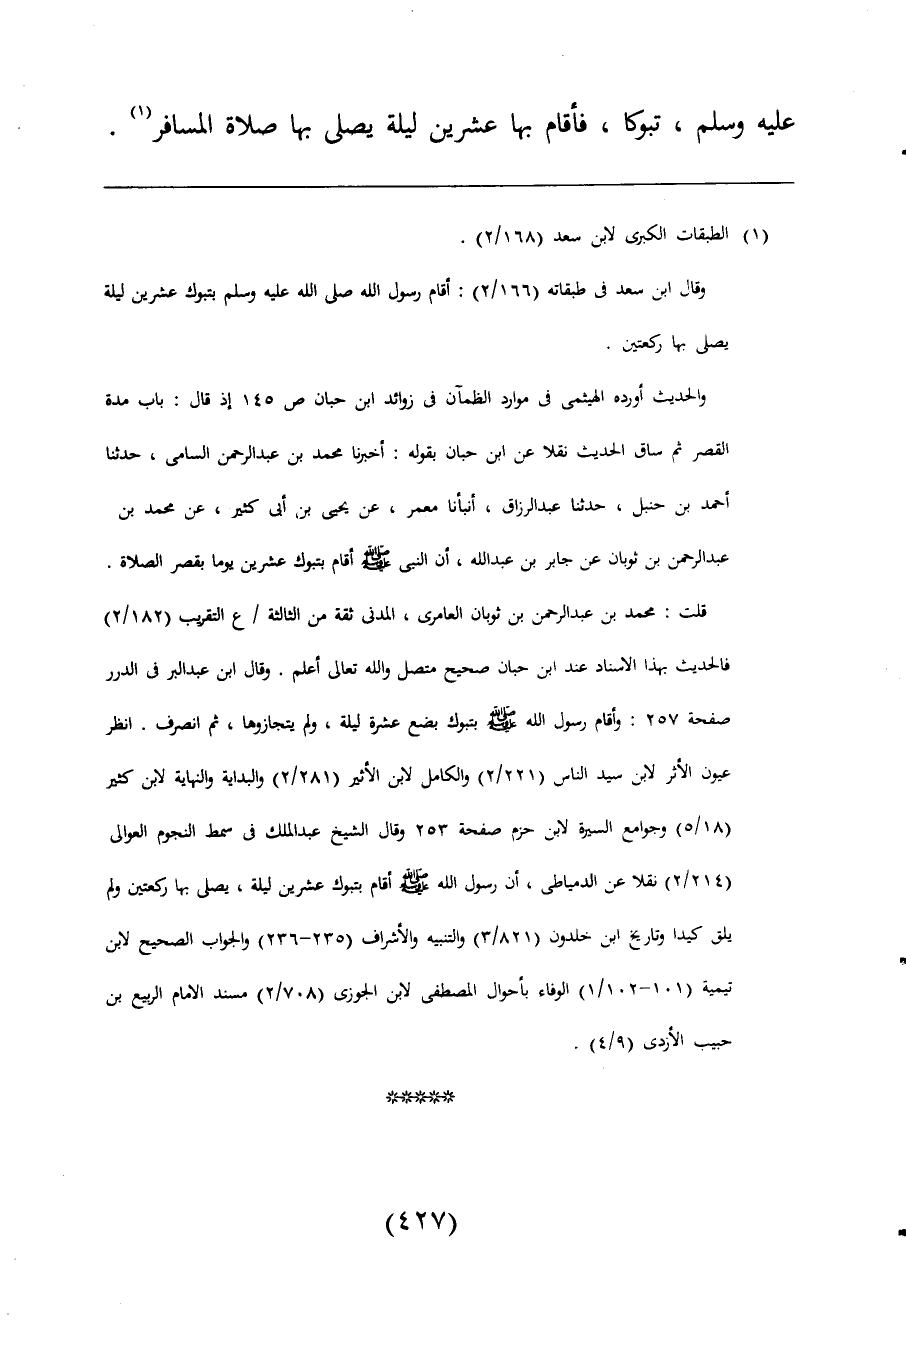 عليه وسلم ، تبوكا ، فأقام بها عشرين ليلة يصلى بها صلاة المسافر(١) .
(١) الطبقات الكبرى لابن سعد (٢/١٦٨) .
وقال ابن سعد فى طبقاته (٢/١٦٦) : أقام رسول الله صلى الله عليه وسلم بتبوك عشرين ليلة
يصلى بها ركعتين .
والحديث أورده الهيثمى فى موارد الظمآن فى زوائد ابن حبان ص ١٤٥ إذ قال : باب مدة
القصر ثم ساق الحديث نقلا عن ابن حبان بقوله : أخبرنا محمد بن عبدالرحمن السامى ، حدثنا
أحمد بن حنبل ، حدثنا عبدالرزاق ، أنبأنا معمر ، عن يحيى بن أبى كثير ، عن محمد بن
عبدالرحمن بن ثوبان عن جابر بن عبدالله ، أن النبى ﷺ أقام بتبوك عشرين يوما بقصر الصلاة .
قلت : محمد بن عبدالرحمن بن ثوبان العامرى ، المدنى ثقة من الثالثة / ع التقريب (٢/١٨٢)
فالحديث بهذا الاسناد عند ابن حبان صحيح متصل والله تعالى أعلم . وقال ابن عبدالبر فى الدرر
صفحة ٢٥٧ : وأقام رسول الله ﷺ بتبوك بضع عشرة ليلة ، ولم يتجازوها ، ثم انصرف . انظر
عيون الأثر لابن سيد الناس (٢/٢٢١) والكامل لابن الأثير (٢/٢٨١) والبداية والنهاية لابن كثير
(٥/١٨) وجوامع السيرة لابن حزم صفحة ٢٥٣ وقال الشيخ عبدالملك فى سمط النجوم العوالى
(٢/٢١٤) نقلا عن الدمياطى ، أن رسول الله ﷺ أقام بتبوك عشرين ليلة ، يصلى بها ركعتين ولم
يلق كيدا وتاريخ ابن خلدون (٣/٨٢١) والتنبيه والأشراف (٢٣٥-٢٣٦) والجواب الصحيح لابن
تيمية (١٠١-١/١٠٢) الوفاء بأحوال المصطفى لابن الجوزى (٢/٧٠٨) مسند الامام الربيع بن
حبيب الأزدى (٤/٩) .
*****
(٤٢٧)